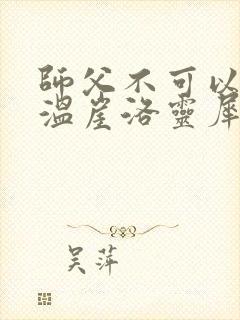 師父不可以
溫崖洛靈犀
吴萍